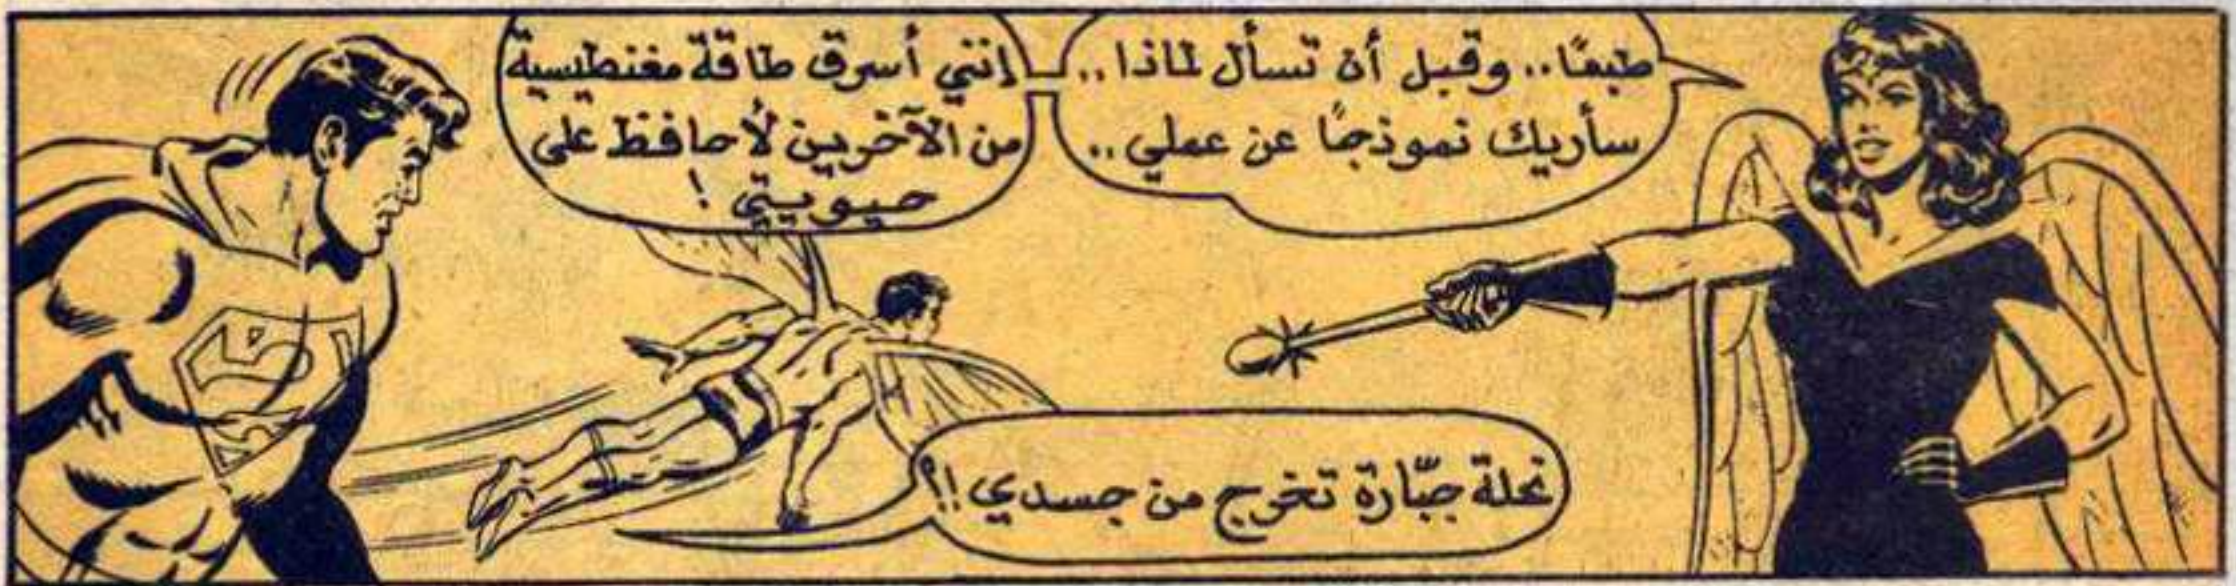 طبعًا.. وقبل أن تسأل لماذا..
سأريك نموذجًا عن عملي..
إنني أسرق طاقة مغنطيسية
من الآخرين لأحافظ على
حيويتي !
نحلة جبّارة تخرج من جسدي !؟